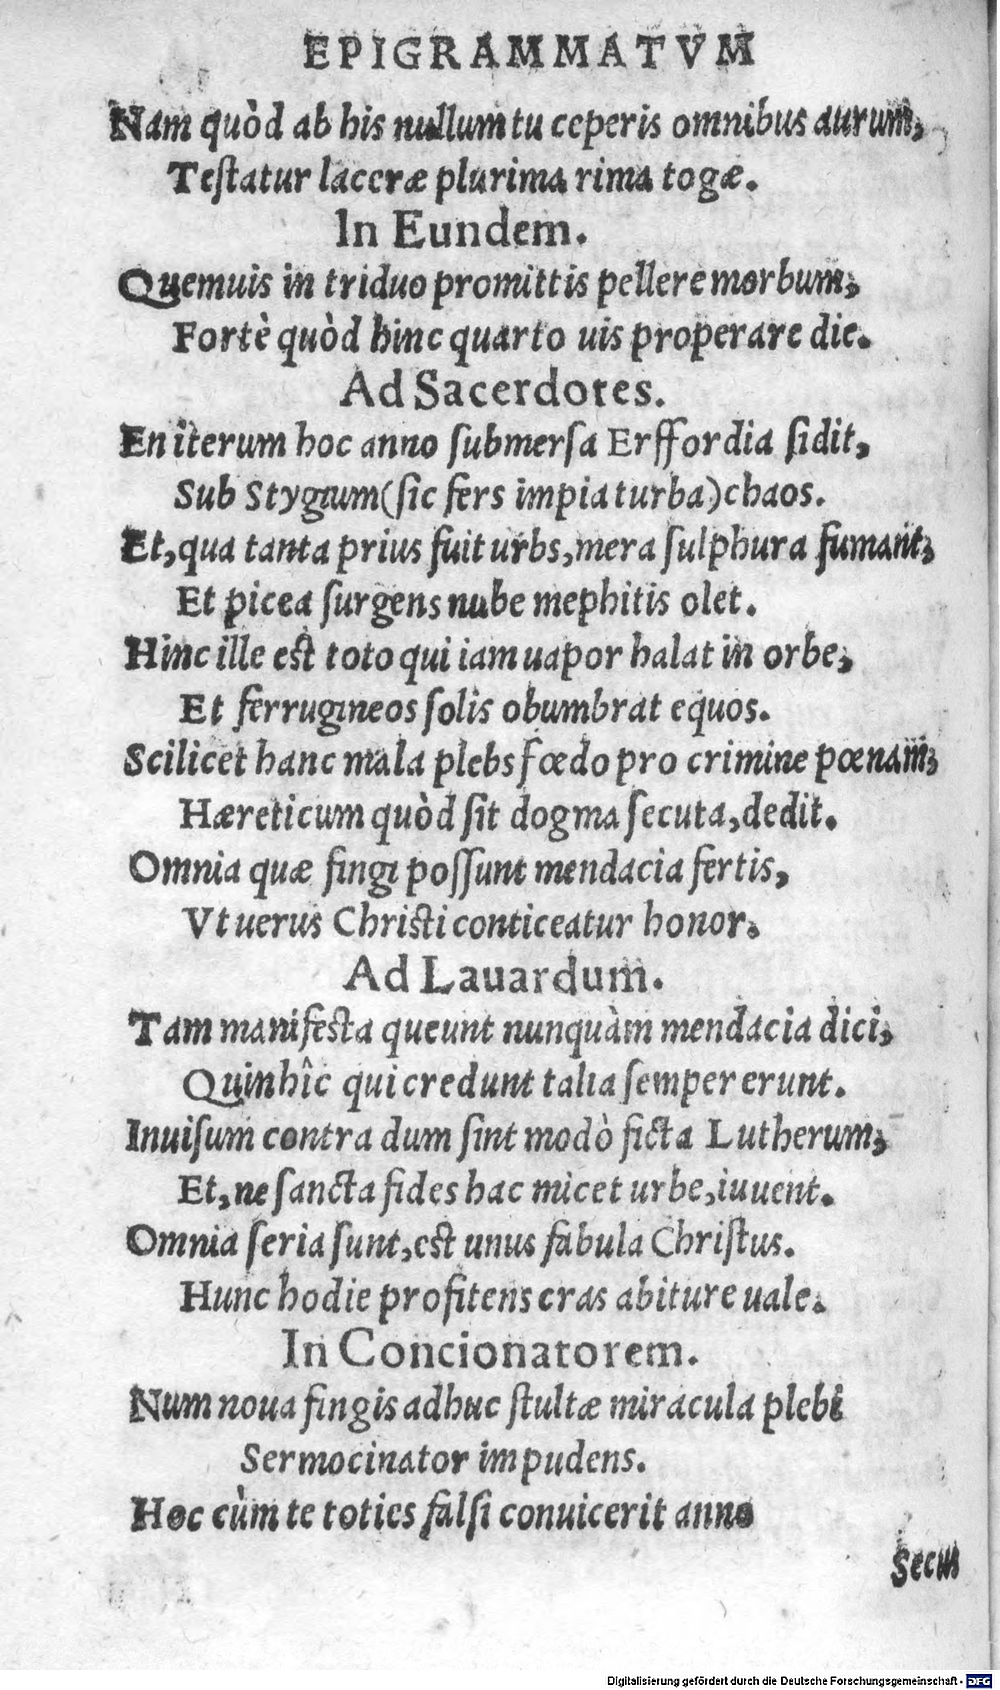 EPIGRAMMATVM
Nam quòd ab his nullum tu ceperis omnibus aurum,
Testatur laceræ plurima rima togæ.
In Eundem.
Quemuis in triduo promittis pellere morbum,
Fortè quòd hinc quarto uis properare die.
Ad Sacerdotes.
En iterum hoc anno submersa Erffordia sidit,
Sub Stygium (sic fers impia turba) chaos.
Et, qua tanta prius fuit urbs, mera sulphura fumant,
Et picea surgens nube mephitis olet.
Hinc ille est toto qui iam uapor halat in orbe,
Et ferrugineos solis obumbrat equos.
Scilicet hanc mala plebs fœdo pro crimine pœnam,
Hæreticum quòd sit dogma secuta, dedit.
Omnia quæ fingi possunt mendacia fertis,
Vt uerus Christi conticeatur honor.
Ad Lauardum.
Tam manifesta queunt nunquàm mendacia dici,
Quin hîc qui credunt talia semper erunt.
Inuisum contra dum sint modò ficta Lutherum,
Et, ne sancta fides hac micet urbe, iuuent.
Omnia seria sunt, est unus fabula Christus.
Hunc hodie profitens cras abiture uale.
In Concionatorem.
Num noua fingis adhuc stultæ miracula plebi
Sermocinator impudens.
Hoc cùm te toties falsi conuicerit anno
Secus
Digitalisierung gefördert durch die Deutsche Forschungsgemeinschaft - DFG